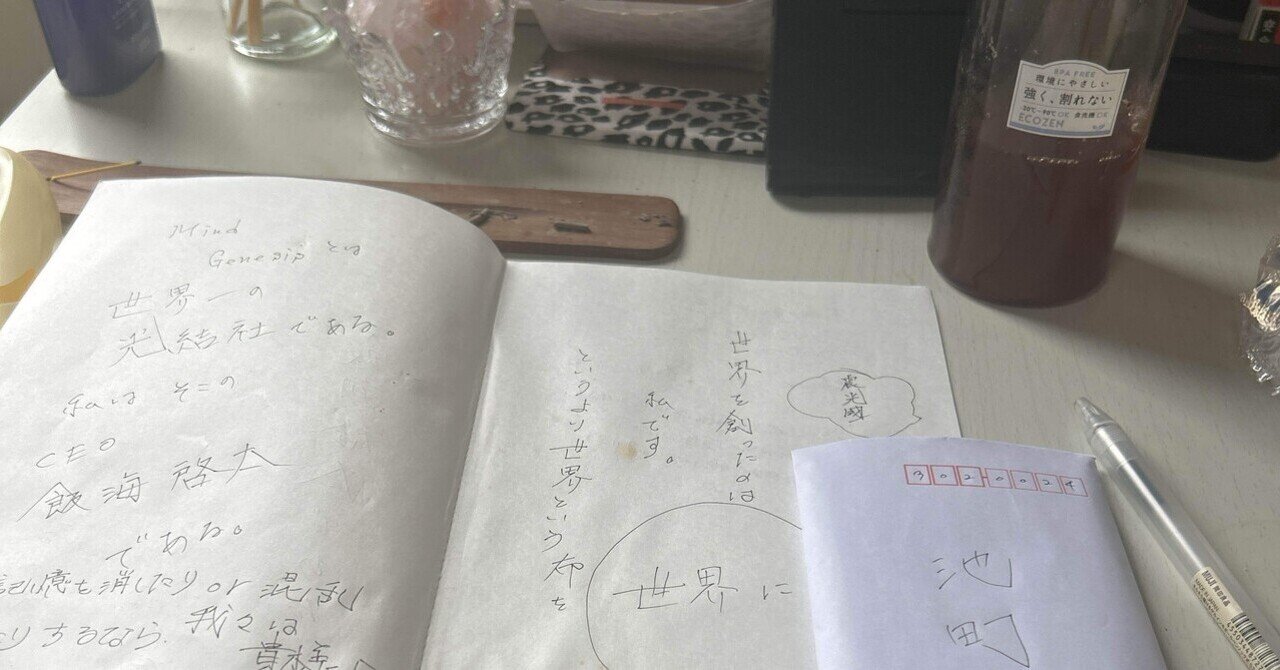 Mind
Genesisとは
世界一の
光結社である。
私はそこの
CEO
飯海啓太
である。
記憶を消したり or 混乱
りするなら、我々は
世界を創ったのは
私です。
というより世界という布を
世界に
302-0024
池
町
BPA FREE
環境にやさしい
強く、割れない
ECOZEN
MUJI 無印良品